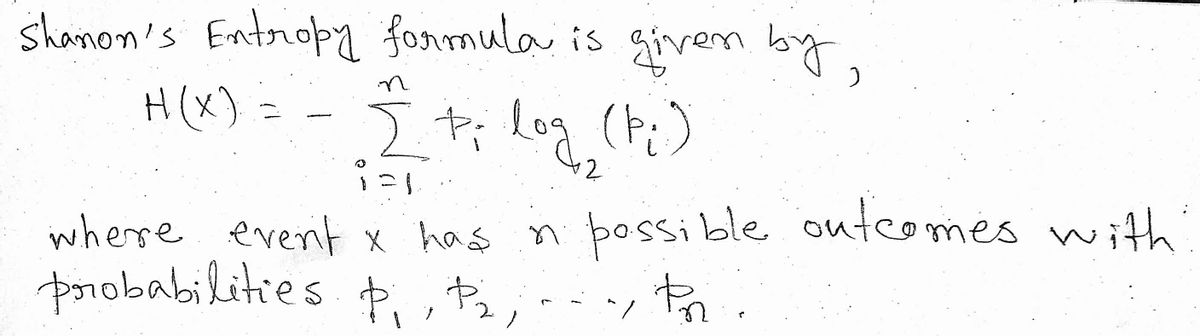 Shanon's Entropy formula is given by,
H(X) = - ∑_{i=1}^{n} p_i log_2 (p_i)
where event x has n possible outcomes with
probabilities p_1, p_2, ----, p_n.